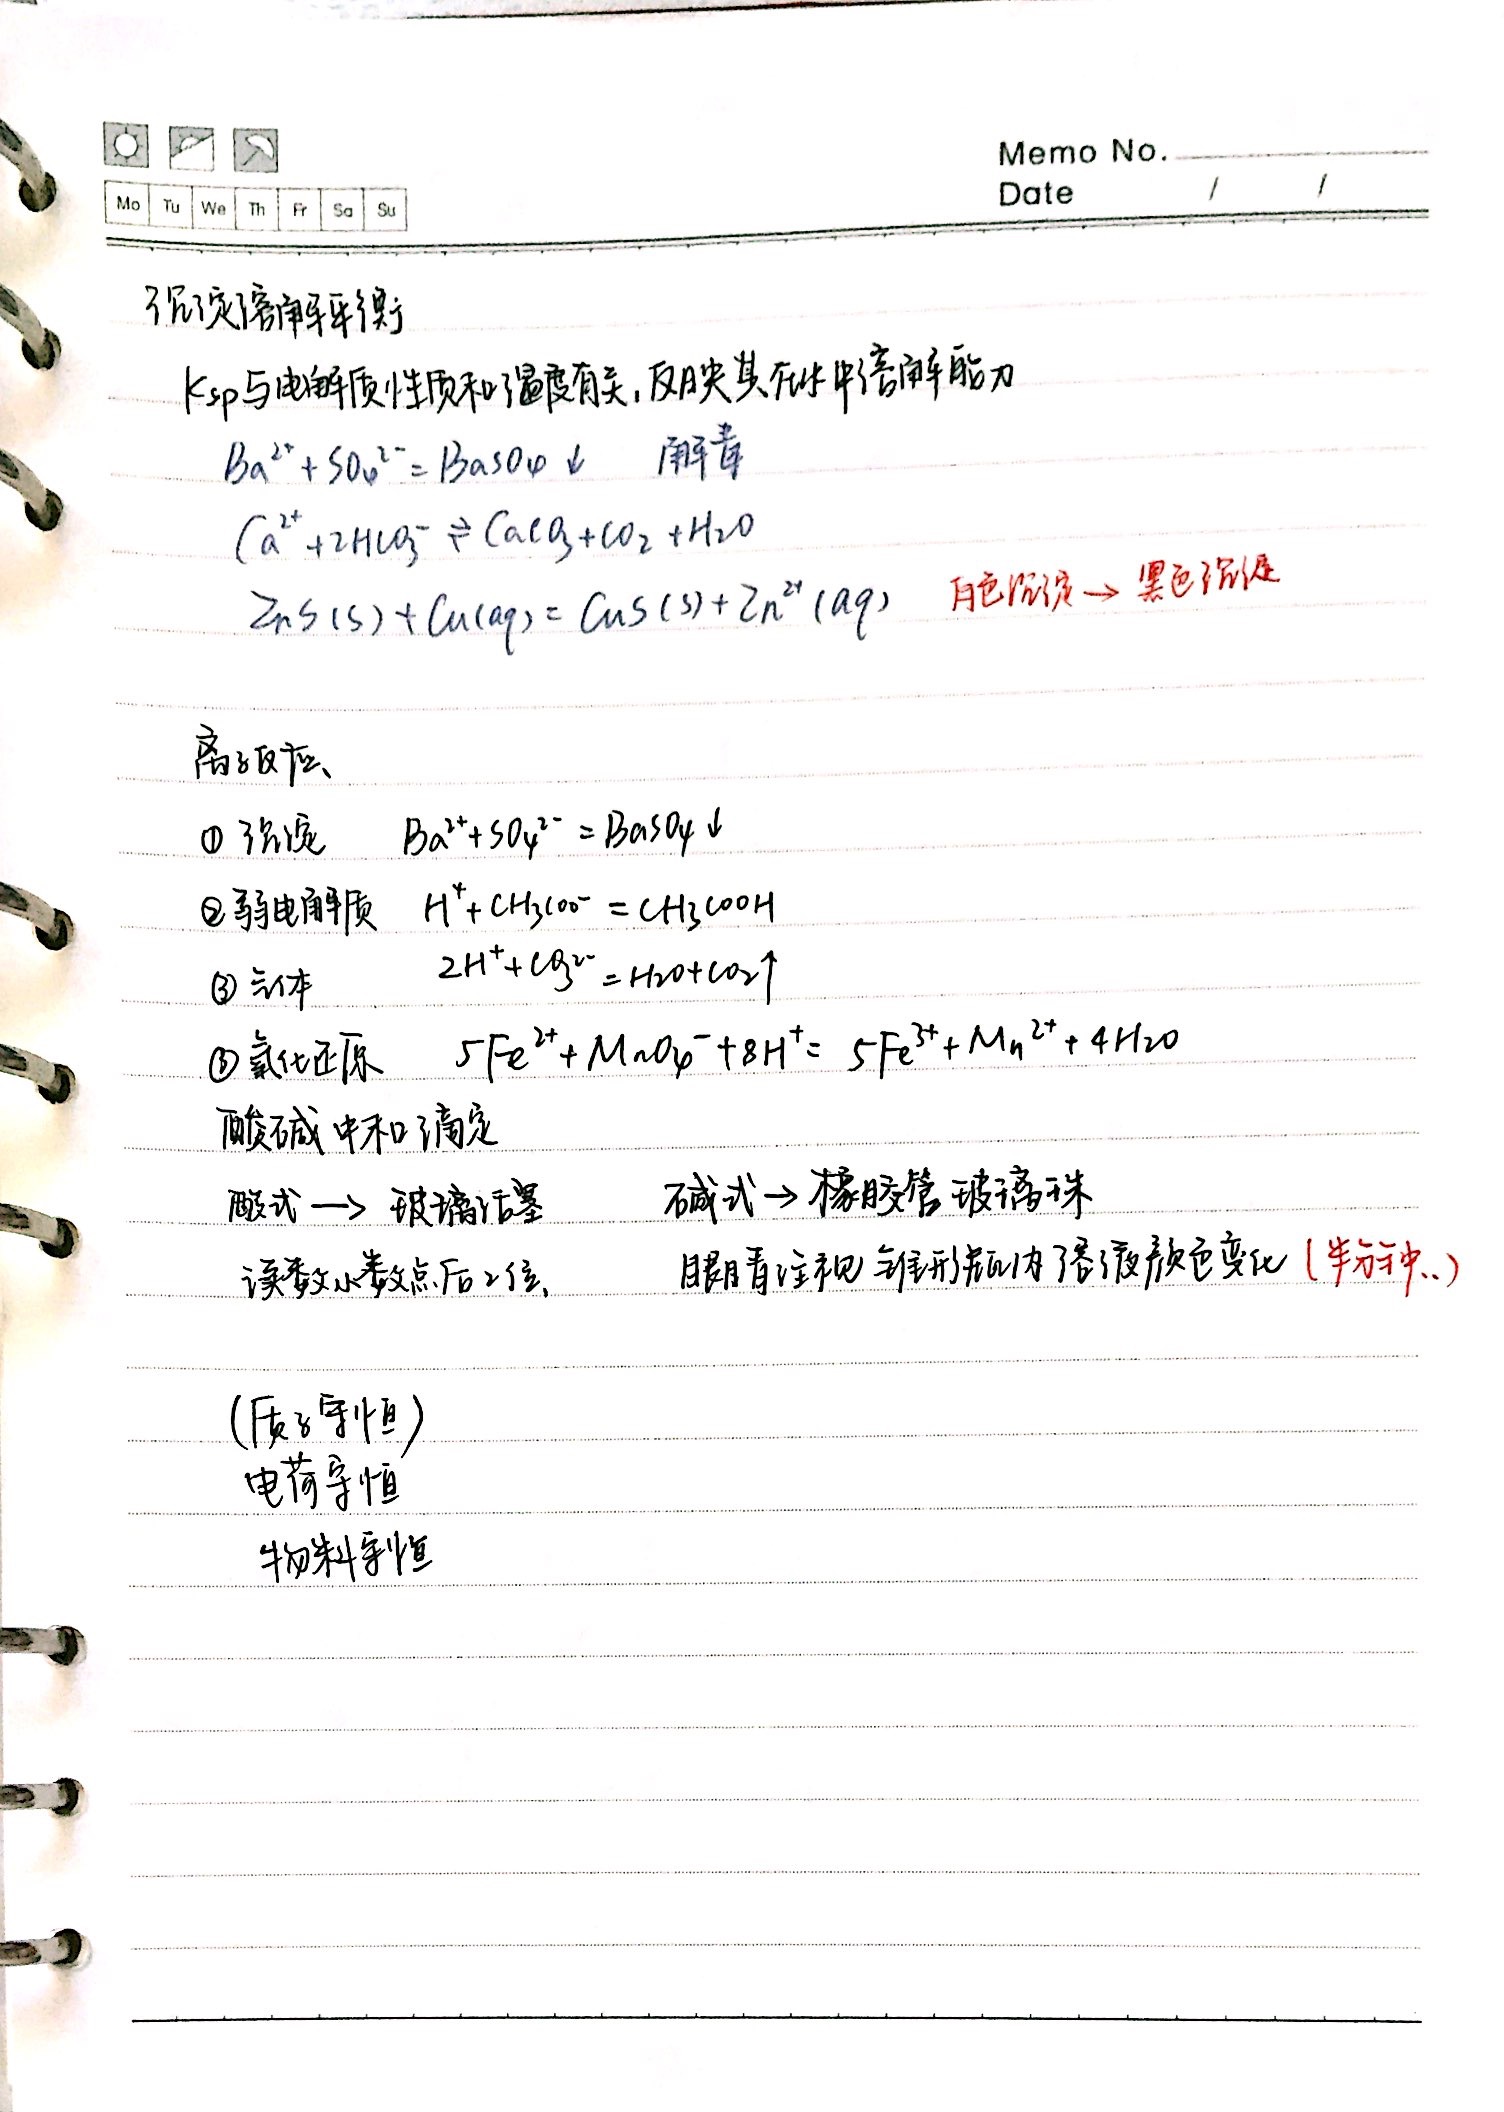 Memo No.
Date / /
Mo Tu We Th Fr Sa Su
沉淀溶解平衡
Ksp与电解质性质和温度有关,反映其在水中溶解能力
Ba²⁺+SO₄²⁻=BaSO₄↓ 解毒
Ca²⁺+2HCO₃⁻⇌CaCO₃+CO₂+H₂O
ZnS(s)+Cu(aq)=CuS(s)+Zn²⁺(aq) 白色沉淀→黑色沉淀
离子反应、
① 沉淀 Ba²⁺+SO₄²⁻=BaSO₄↓
②弱电解质 H⁺+CH₃COO⁻=CH₃COOH
③ 气体 2H⁺+CO₃²⁻=H₂O+CO₂↑
③氧化还原 5Fe²⁺+MnO₄⁻+8H⁺=5Fe³⁺+Mn²⁺+4H₂O
酸碱中和滴定
酸式→玻璃活塞 碱式→橡胶管玻璃珠
读数小数点后2位、 眼睛注视锥形瓶内溶液颜色变化(半分钟..)
(质子守恒)
电荷守恒
物料守恒